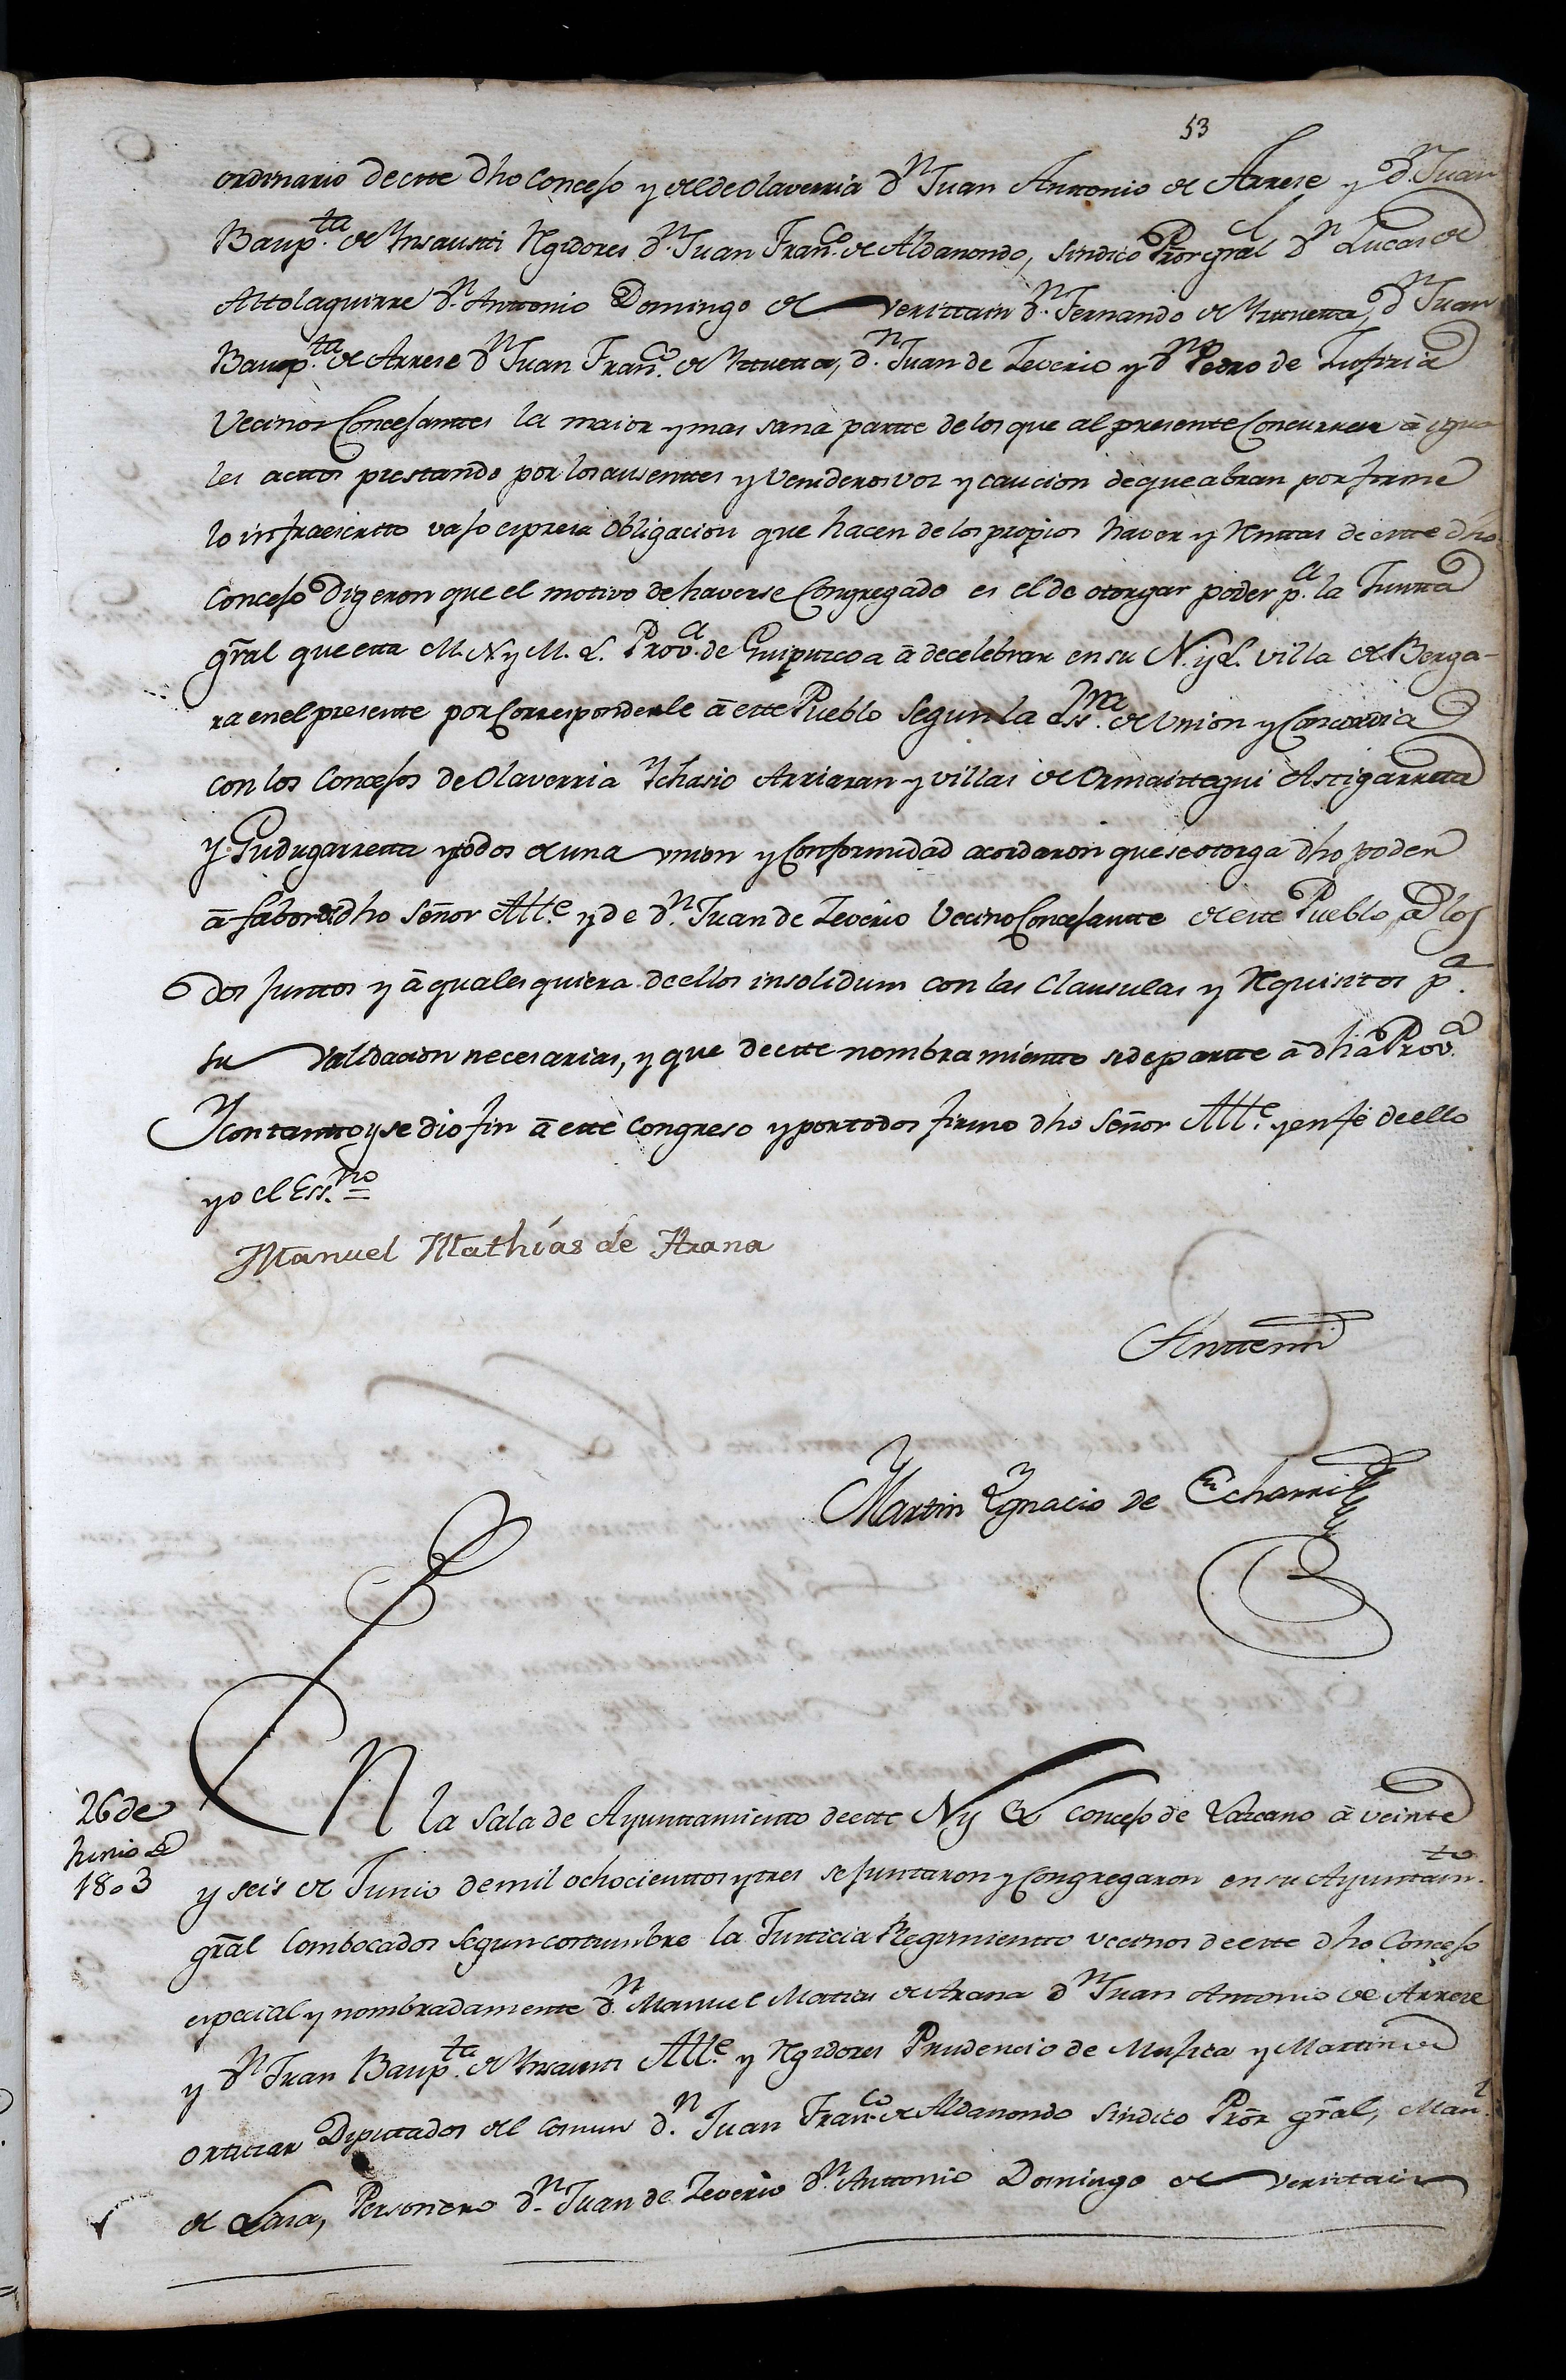 53
ordinario de este dho Concejo y el de Olaverria Dn. Juan Anttonio de Arrese y Dn. Juan
Baup.ta de Ynsausti Regidores Dn. Juan Fran.co de Aldanondo, Sindico Pror gral Dn. Lucas de
Attolaguirre Dn. Anttonio Domingo de Veristtain Dn. Fernando de Yttuetta, Dn. Juan
Baup.ta de Arrese Dn. Juan Fran.co de Yttuetta, Dn. Juan de Zeverio y Dn. Pedro de Lusiria
Vecinos Concejanttes la maior y mas sana partte de los que al presente Concurren â igua
les acttos prestando por los ausenttes y Venideros voz y caucion de que abran por firme
lo infraescritto vajo espresa obligacion que hacen de los propios haver y Renttas de estte dho
Concejo Digeron que el motivo de haverse Congregado es el de otorgar poder p.a la Juntta
gral que esta M. N. y M. L. Prov.a de Guipuzcoa â de celebrar en su N. y L. villa de Berga-
ra en el presente por Corresponderle â estte Pueblo Segun la Ess.ra de Union y Concordia
con los Concejos de Olaverria Ychasio Arriaran y villas de Ormaisttegui Astigarreta
y Gudugarretta y todos de una union y Conformidad acordaron que se otorga dho poder
â fabor de dho Señor Alle. y de Dn. Juan de Zeverio Vecino Concejantte de estte Pueblo, â los
dos Junttos y â quales quiera de ellos insolidum con las Clausulas y Requisitos p.a
su Validacion necesarias, y que de estte nombramientto se de partte â dha Prov.a
Y con tantto y se dio fin â estte Congreso y por todos firmo dho Señor Alle. y en fé de ello
yo el Ess.no =
Manuel Mathías de Arana
Anttemi
Martin Ygnacio de Echarri
26 de
Junio de
1803
En la Sala de Ayunttamientto de estte N y L Concejo de Lazcano â veinte
y seis de Junio de mil ochocienttos y tres se Juntaron y Congregaron en su Ayuntam.to
gral Combocados segun costtumbre la Justticia Regimientto vecinos de estte dho Concejo
especial y nombradamente Dn. Manuel Matias de Arana Dn. Juan Antonio de Arrese
y Dn. Juan Baup.ta de Ynsausti Alle. y Regidores Prudencio de Mujica y Martin de
Orttizar Diputtados del Comun Dn. Juan Fran.co de Aldanondo Sindico Pror gral, Man.l
de Lasa, Personero Dn. Juan de Zeverio Dn. Anttonio Domingo de Veristtain